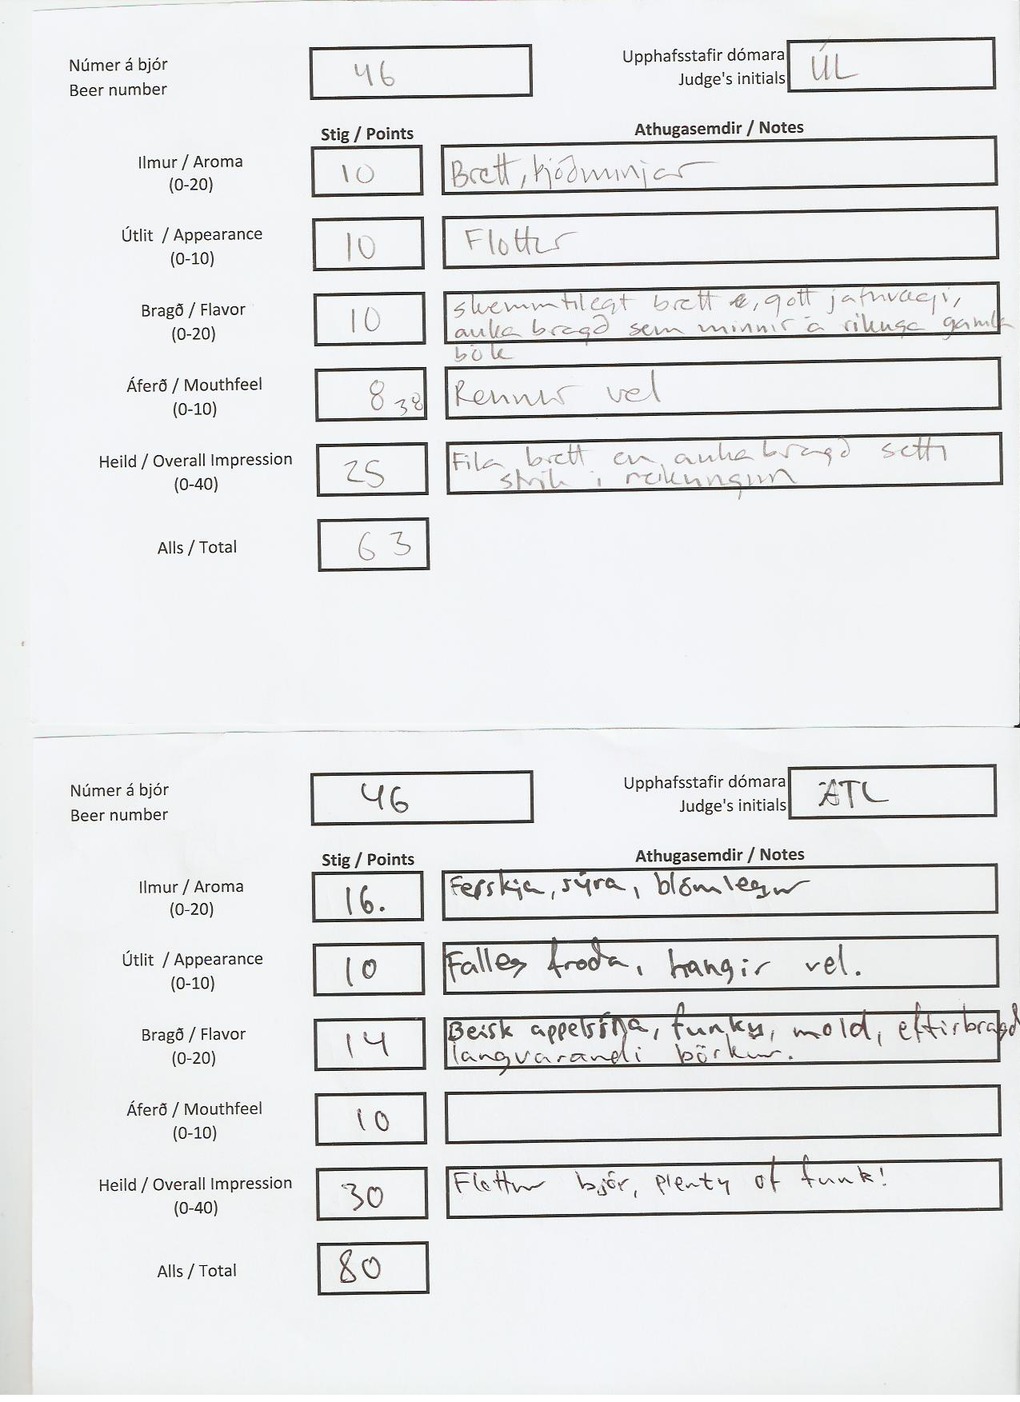 Númer á bjór
Beer number
46
Upphafsstafir dómara
Judge's initials
ÚL
Stig / Points
Athugasemdir / Notes
Ilmur / Aroma
(0-20)
10
Brett, þjóðminjar
Útlit / Appearance
(0-10)
10
Flottur
Bragð / Flavor
(0-20)
10
skemmtilegt brett, gott jafnvægi,
auka bragð sem minnir á ríkuga gamla
bók
Áferð / Mouthfeel
(0-10)
8 38
Rennur vel
Heild / Overall Impression
(0-40)
25
Fíla brett en auka bragð setti
strik í reikninginn
Alls / Total
63
Númer á bjór
Beer number
46
Upphafsstafir dómara
Judge's initials
ÆTL
Stig / Points
Athugasemdir / Notes
Ilmur / Aroma
(0-20)
16.
Ferskja, sýra, blómlegur
Útlit / Appearance
(0-10)
10
Falleg froða, hangir vel.
Bragð / Flavor
(0-20)
14
Beisk appelsína, funky, mold, eftirbragð
langvarandi börkur.
Áferð / Mouthfeel
(0-10)
10
Heild / Overall Impression
(0-40)
30
Flottur bjór, plenty of funk!
Alls / Total
80